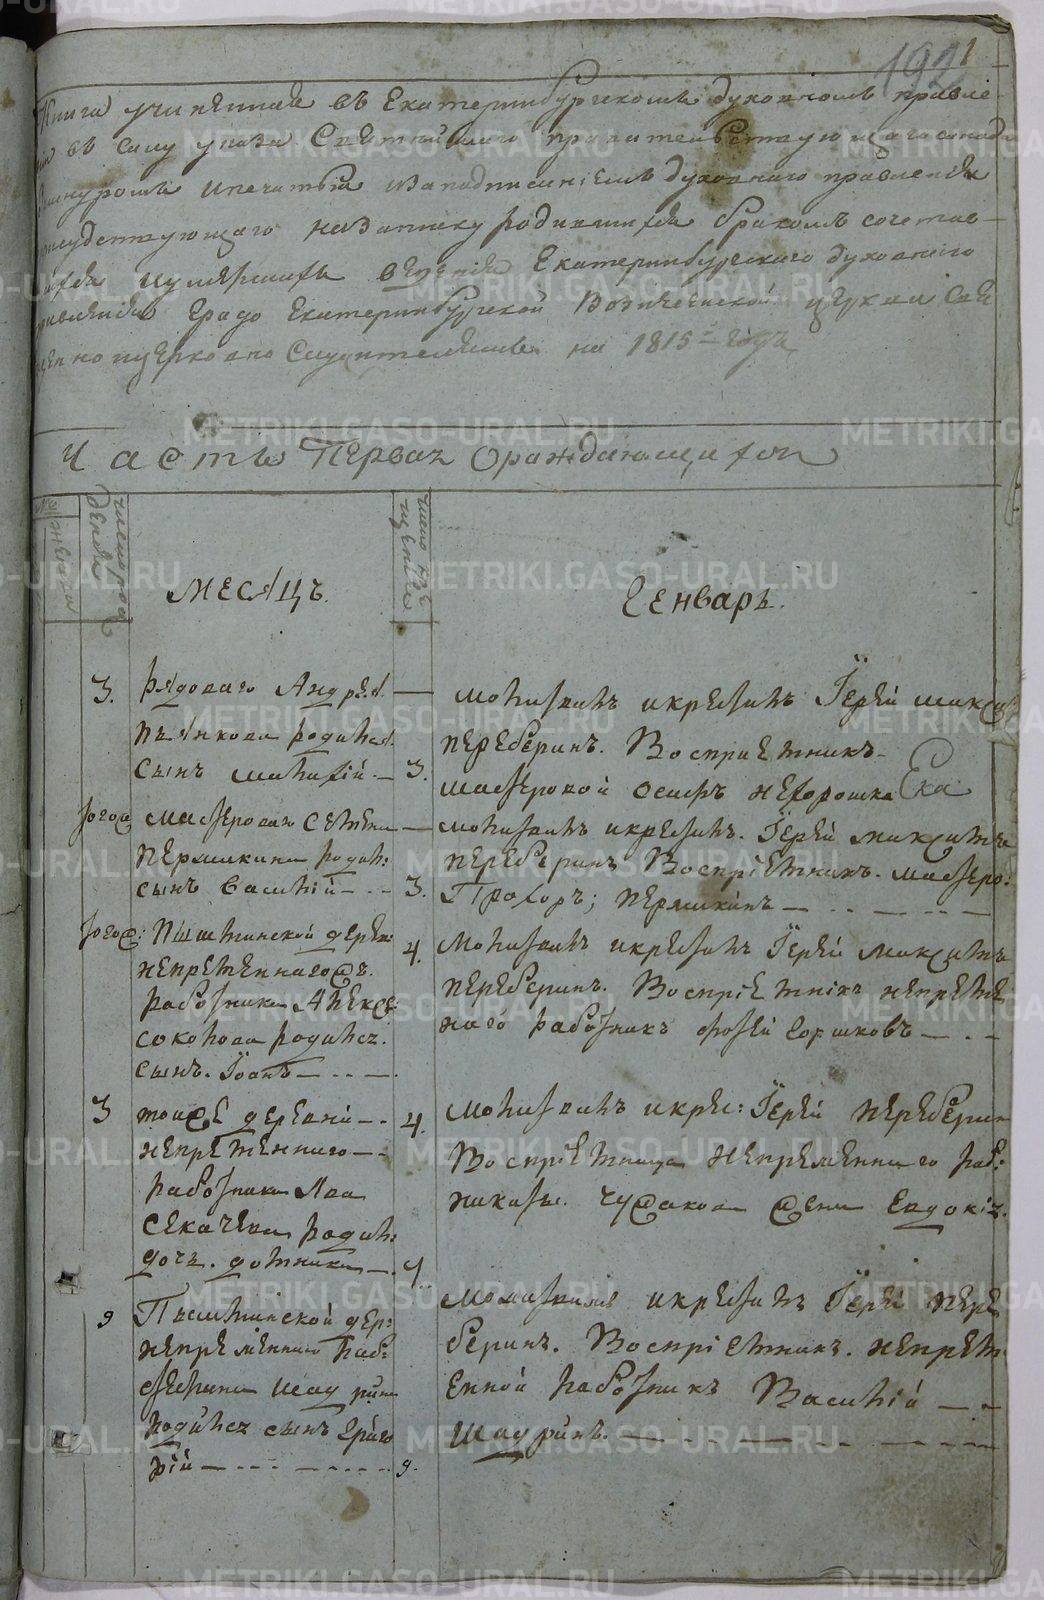 192 1
Книга учиненная въ Екатеринбургскомъ духовномъ правле-
въ силу указа Святейшаго правительствующаго синода
шнуромъ и печатью и за подписаниемъ духовнаго правления
присудствующаго на записку родившихся бракомъ сочетав-
и умершихъ ведения Екатеринбургскаго духовнаго
правления Градо Екатеринбургской Вознесенской церкви Свя
щенно церковно служителямъ на 1815 годъ
Часть Первая о раждающихся
число рожд
число кре
месяцъ
Генварь.
3. рядоваго Андрея
Пьянкова родился
сынъ
3.
молитвилъ и крестилъ Iерей Макси
Переберинъ. Восприемникъ
мастеровой Осипъ Нехорошка
Ека
тогож мастероваго Семена
Пермикина родил:
сынъ Василий
3.
молитвилъ и крестилъ. Iерей Максимъ
Переберинъ Восприемникъ. мастеро:
Прохоръ; Пермикинъ
тогож: Пышминской дерев:
непременнагожъ
работника Алексе:
Соколова родился.
сынъ. Iоанъ
4.
молитвилъ и крестилъ Iерей Максимъ
Переберинъ. Восприемникъ непреме
наго работникъ Горшковъ
3 тоиже деревни
непременнаго
работника
Секачева родил:
дочь.
4.
молитвилъ и крес: Iерей Переберин
Восприемница непременнаго раб:
жена Евдокия.
4
9 Пышминской дер:
непременнаго раб:
Шадрин
родился сынъ Григо
рий
9.
молитвилъ и крестилъ Iерей Пере
беринъ. Восприемникъ. непрем
енной работникъ Василий
Шадринъ.
METRIKI.GASO-URAL.RU